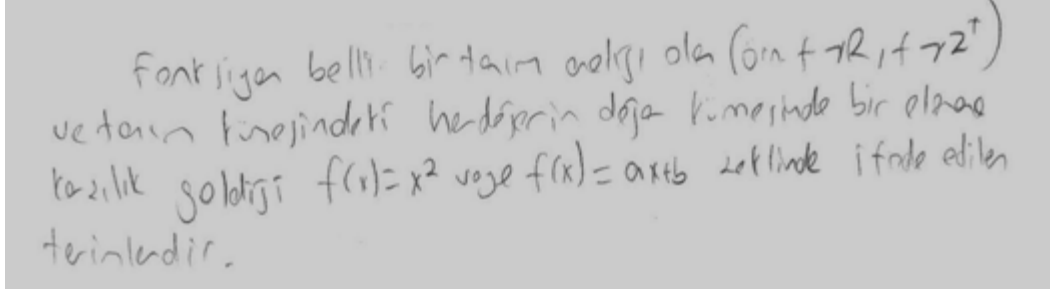 Fonksiyon belli bir tanım aralığı olan (örn f→R, f→Z⁺)
ve tanım kümesindeki her değerin değer kümesinde bir elemana
karşılık geldiği f(x)=x² veya f(x)=ax+b şeklinde ifade edilen
terimlerdir.